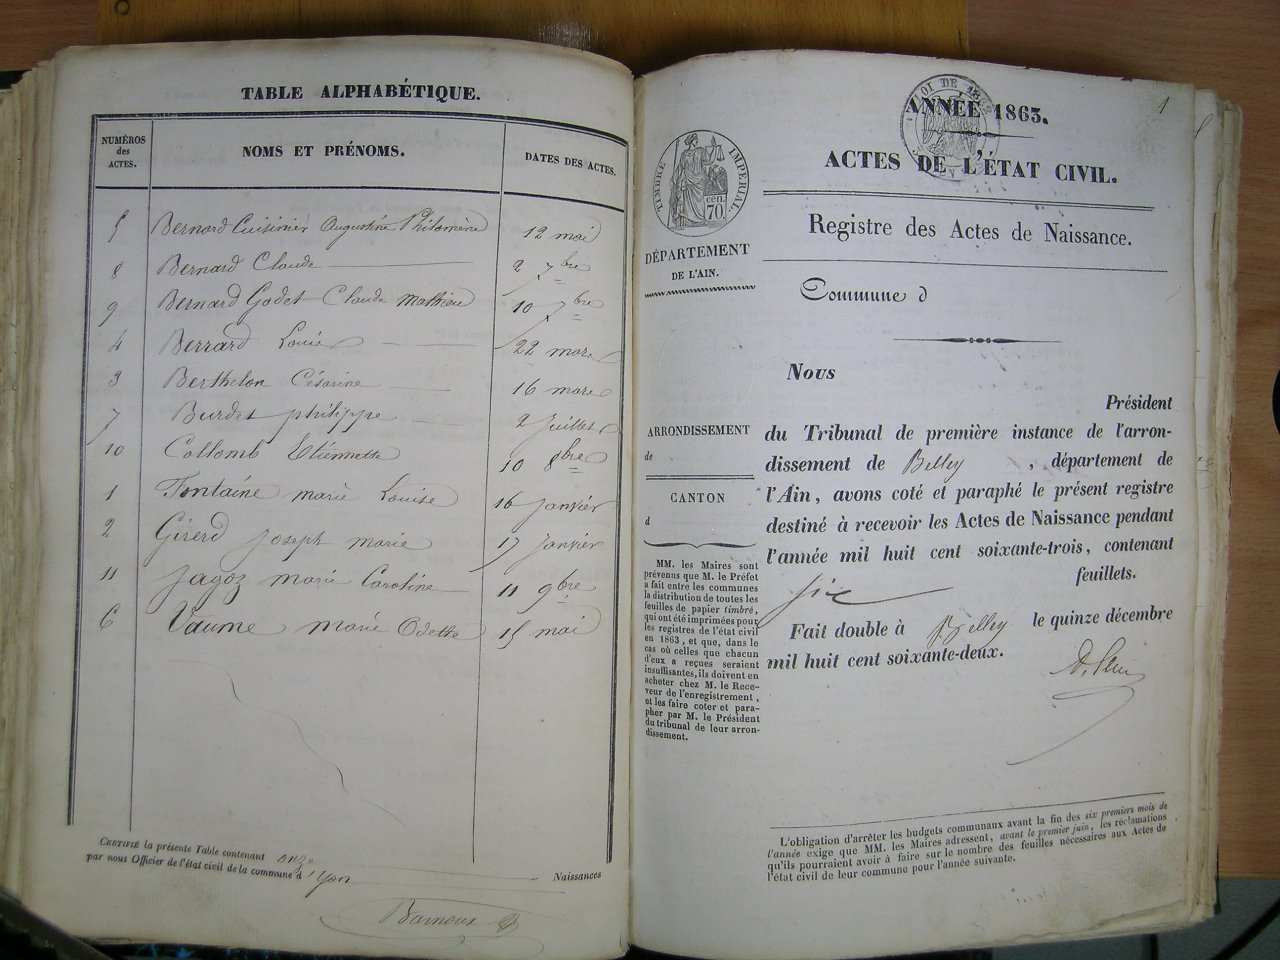 TABLE ALPHABÉTIQUE.
NUMÉROS des ACTES. NOMS ET PRÉNOMS. DATES DES ACTES.
5 Bernard Cuisinier Augustine Philomène 12 mai
8 Bernard Claude 2 7bre
9 Bernard Godet Claude Mathieu 10 7bre
4 Berrard Louis 22 mars
3 Berthelon Césarine 16 mars
7 Burdet philippe 2 Juillet
10 Collomb Etiennette 10 8bre
1 Fontaine marie Louise 16 Janvier
2 Girerd Joseph marie 17 Janvier
11 Jagoz marie Caroline 11 9bre
6 Vaume marie Odette 15 mai
CERTIFIÉ la présente Table contenant onze Naissances
par nous Officier de l'état civil de la commune d'Yon
ANNÉE 1863.
1
ACTES DE L'ÉTAT CIVIL.
TIMBRE IMPÉRIAL.
70 cen.
LOI DE
DÉPARTEMENT
DE L'AIN.
Registre des Actes de Naissance.
Commune d
Nous
Président
du Tribunal de première instance de l'arron-
dissement de Belley, département de
l'Ain, avons coté et paraphé le présent registre
destiné à recevoir les Actes de Naissance pendant
l'année mil huit cent soixante-trois, contenant
six feuillets.
Fait double à Belley le quinze décembre
mil huit cent soixante-deux.
ARRONDISSEMENT
de
CANTON
d
MM. les Maires sont
prévenus que M. le Préfet
a fait entre les communes
la distribution de toutes les
feuilles de papier timbré,
qui ont été imprimées pour
les registres de l'état civil
en 1863, et que, dans le
cas où celles que chacun
d'eux a reçues seraient
insuffisantes, ils doivent en
acheter chez M. le Rece-
veur de l'enregistrement,
et les faire coter et para-
pher par M. le Président
du tribunal de leur arron-
dissement.
L'obligation d'arrêter les budgets communaux avant la fin des six premiers mois de
l'année exige que MM. les Maires adressent, avant le premier juin, les réclamations
qu'ils pourraient avoir à faire sur le nombre des feuilles nécessaires aux Actes de
l'état civil de leur commune pour l'année suivante.